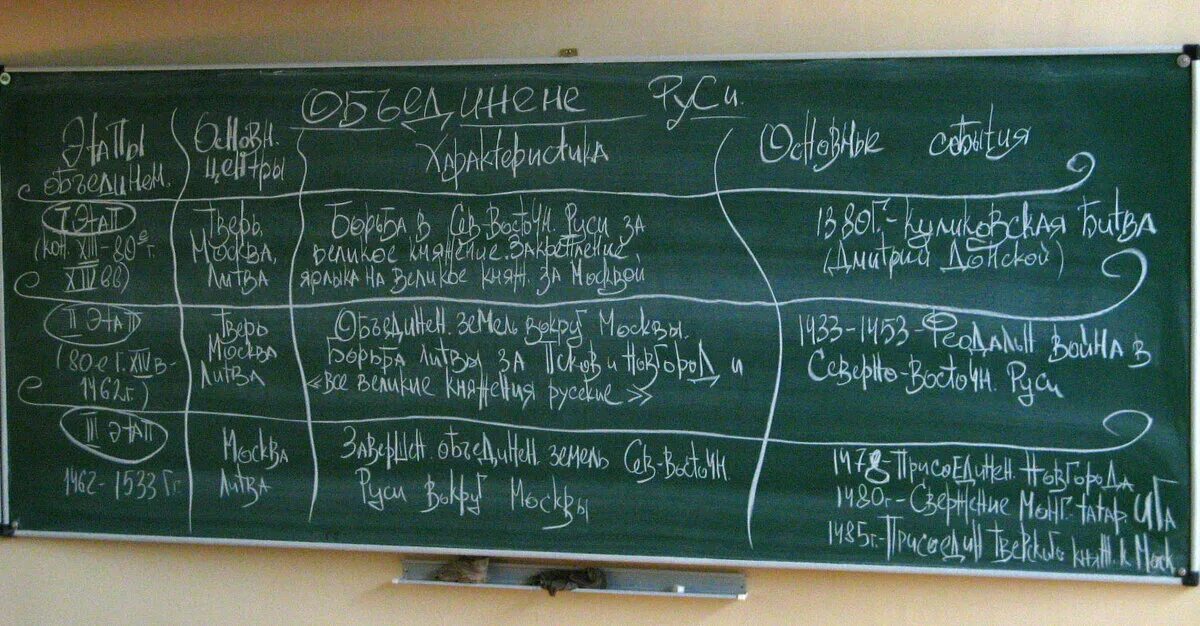 Объединене Руси.
Этапы
объединем.
Основн.
центры
Характеристика
Основные события
I этап
(кон. XIII-80е г.
XIV вв)
Тверь,
Москва,
Литва
Борьба в Сев-Восточн. Руси за
великое княжение. Закрепление
ярлыка на великое княж. за Москвой
1380г.-Куликовская битва
(Дмитрий Донской)
II этап
(80е г. XIV в-
1462г.)
Тверь
Москва
Литва
Объединен. земель вокруг Москвы.
Борьба Литвы за Псков и Новгород и
«все великие княжения русские»
1433-1453-Феодальн война в
Северно-Восточн. Руси
III этап
1462-1533 Гг.
Москва
Литва
Завершен объединен. земель Сев-Восточн.
Руси вокруг Москвы
1478-Присоединен. Новгорода
1480г.-Свержение монг-татар. ига
1485г.-Присоедин Тверского княж. к Моск